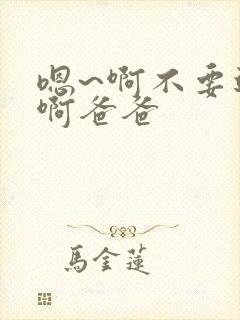 嗯~啊不要
啊爸爸
馬金蓮